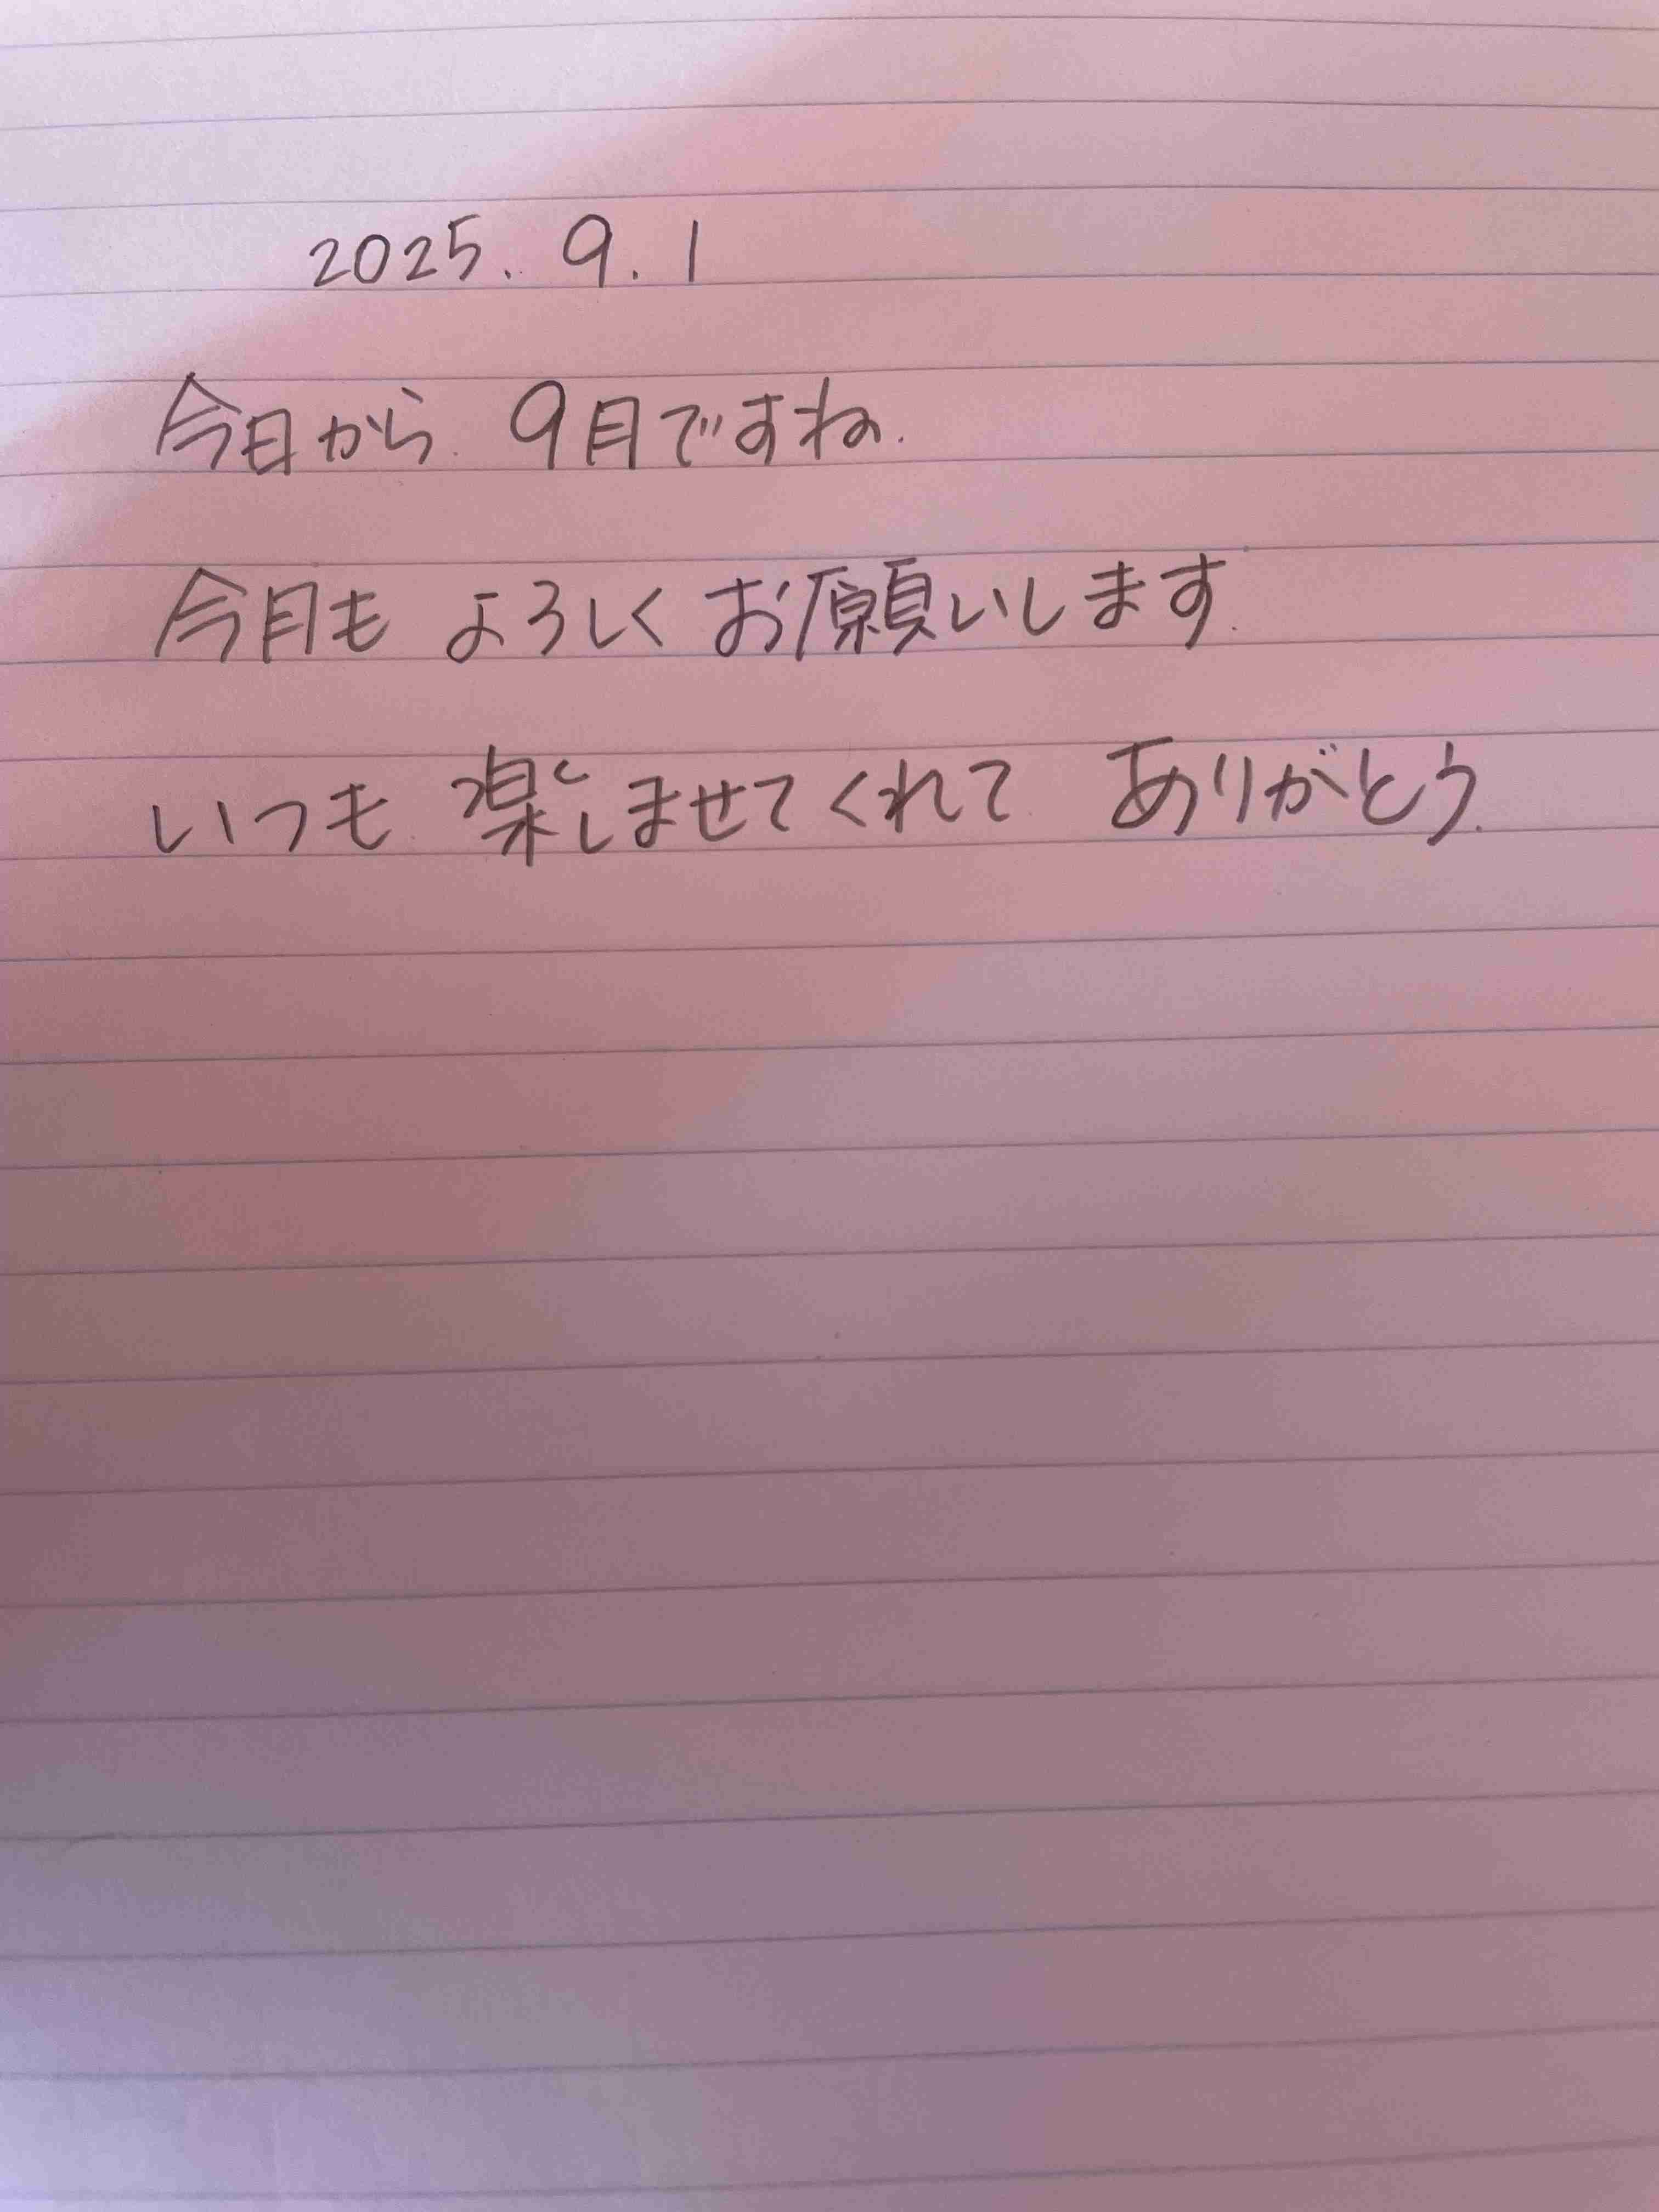 2025. 9. 1
今日から 9月ですね.
今月も よろしく お願いします.
いつも 楽しませてくれて ありがとう.